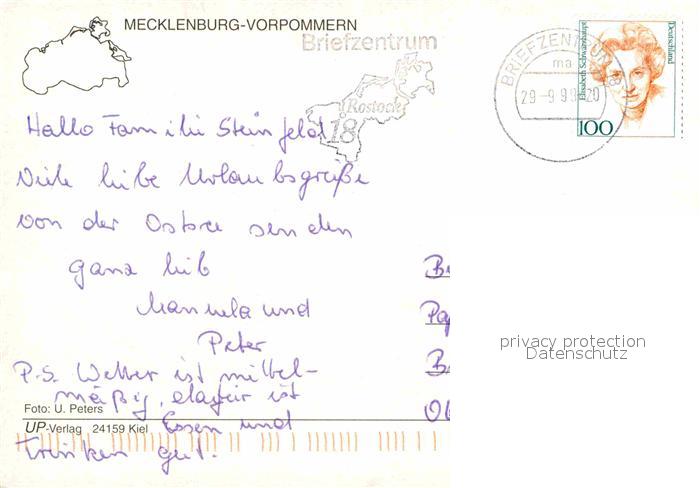 MECKLENBURG-VORPOMMERN
Briefzentrum
Rostock
18
BRIEFZENTRUM 18
ma
29-9.9 -20
Elisabeth Schwarzhaupt
Deutschland
100
Hallo Familie Steinfeld
Viele liebe Urlaubsgrüße
von der Ostsee senden
ganz lieb
Manuela und
Peter
P.S. Wetter ist mittel-
mäßig, dafür ist
Essen und
Trinken gut.
Foto: U. Peters
UP-Verlag 24159 Kiel
privacy protection
Datenschutz